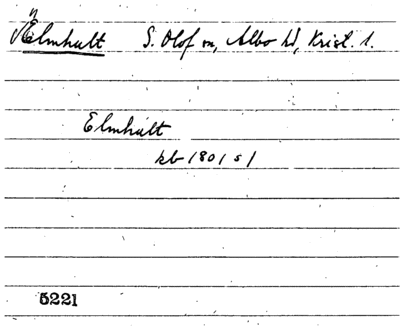 Elmhult S. Olof sn, Albo hd, Krist. l.
Elmhult
kb 1801 s 1
5221